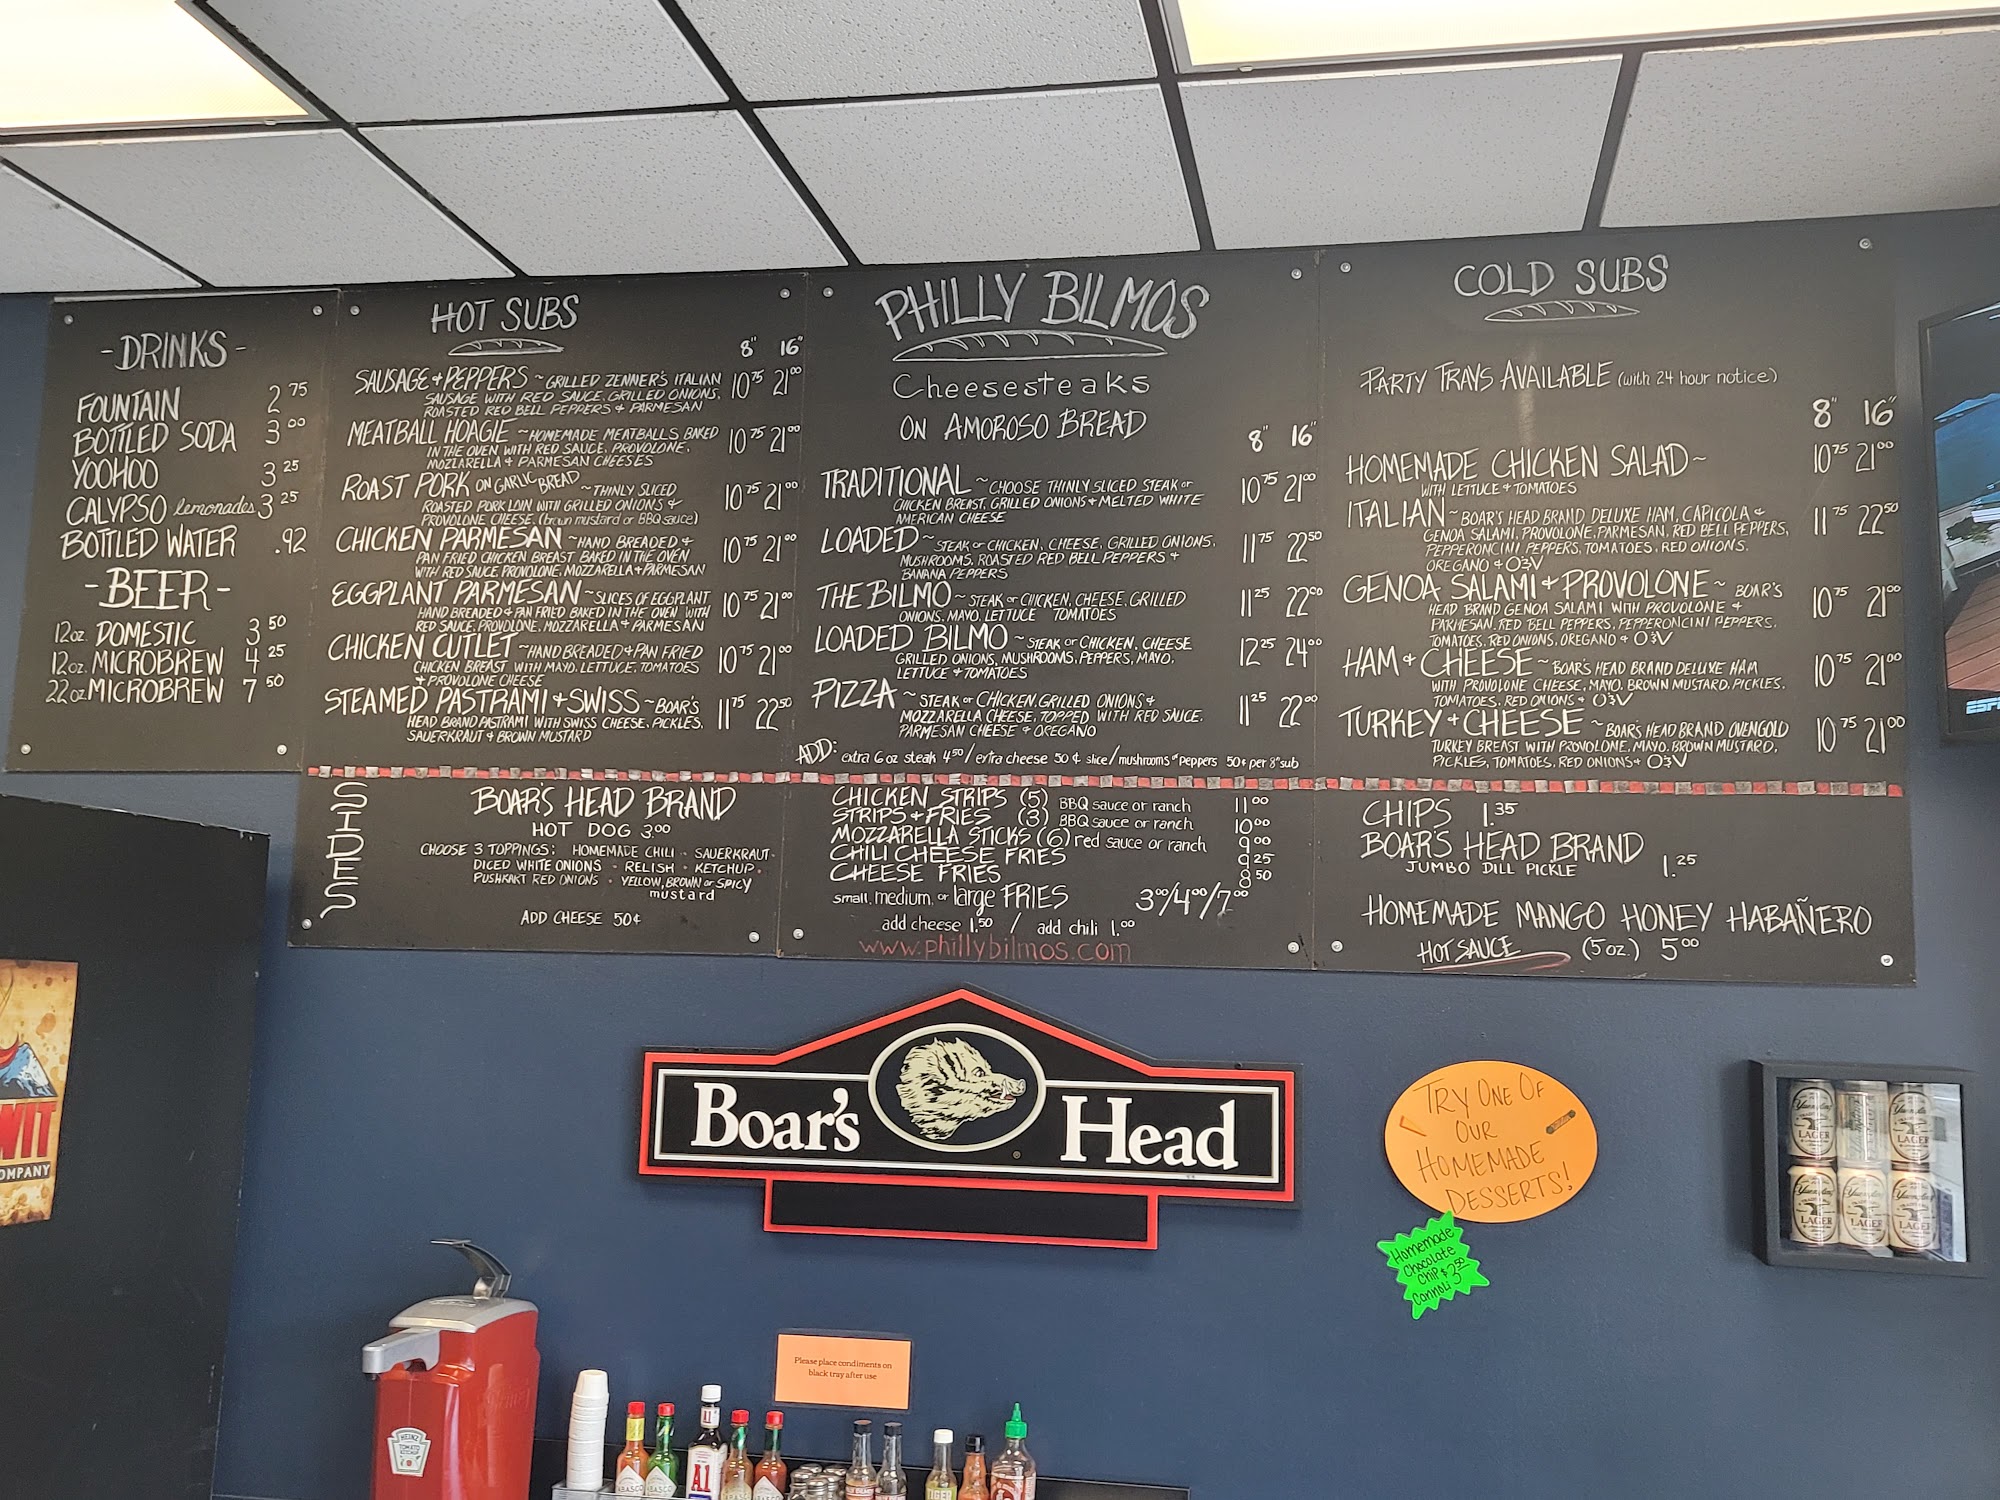 -DRINKS-
FOUNTAIN 2 75
BOTTLED SODA 3 00
YOOHOO 3 25
CALYPSO lemonades 3 25
BOTTLED WATER .92
-BEER-
12oz. DOMESTIC 3 50
12oz. MICROBREW 4 25
22oz MICROBREW 7 50
HOT SUBS
8" 16"
SAUSAGE + PEPPERS ~ GRILLED ZENNER'S ITALIAN 10 75 21 00
SAUSAGE WITH RED SAUCE, GRILLED ONIONS,
ROASTED RED BELL PEPPERS + PARMESAN
MEATBALL HOAGIE ~ HOMEMADE MEATBALLS BAKED 10 75 21 00
IN THE OVEN WITH RED SAUCE, PROVOLONE,
MOZZARELLA + PARMESAN CHEESES
ROAST PORK ON GARLIC BREAD ~ THINLY SLICED 10 75 21 00
ROASTED PORK LOIN WITH GRILLED ONIONS +
PROVOLONE CHEESE. (brown mustard or BBQ sauce)
CHICKEN PARMESAN ~ HAND BREADED + 10 75 21 00
PAN FRIED CHICKEN BREAST BAKED IN THE OVEN
WITH RED SAUCE PROVOLONE, MOZZARELLA + PARMESAN
EGGPLANT PARMESAN ~ SLICES OF EGGPLANT 10 75 21 00
HAND BREADED + PAN FRIED BAKED IN THE OVEN WITH
RED SAUCE, PROVOLONE, MOZZARELLA + PARMESAN
CHICKEN CUTLET ~ HAND BREADED + PAN FRIED 10 75 21 00
CHICKEN BREAST WITH MAYO, LETTUCE, TOMATOES
+ PROVOLONE CHEESE
STEAMED PASTRAMI + SWISS ~ BOAR'S 11 75 22 50
HEAD BRAND PASTRAMI WITH SWISS CHEESE, PICKLES,
SAUERKRAUT + BROWN MUSTARD
PHILLY BILMOS
Cheesesteaks
ON AMOROSO BREAD
8" 16"
TRADITIONAL ~ CHOOSE THINLY SLICED STEAK or 10 75 21 00
CHICKEN BREAST, GRILLED ONIONS + MELTED WHITE
AMERICAN CHEESE
LOADED ~ STEAK or CHICKEN, CHEESE, GRILLED ONIONS, 11 75 22 50
MUSHROOMS, ROASTED RED BELL PEPPERS +
BANANA PEPPERS
THE BILMO ~ STEAK or CHICKEN, CHEESE, GRILLED 11 25 22 00
ONIONS, MAYO, LETTUCE TOMATOES
LOADED BILMO ~ STEAK or CHICKEN, CHEESE 12 25 24 00
GRILLED ONIONS, MUSHROOMS, PEPPERS, MAYO,
LETTUCE + TOMATOES
PIZZA ~ STEAK or CHICKEN, GRILLED ONIONS + 11 25 22 00
MOZZARELLA CHEESE, TOPPED WITH RED SAUCE,
PARMESAN CHEESE + OREGANO
ADD: extra 6 oz steak 4.50 / extra cheese 50¢ slice / mushrooms or peppers 50¢ per 8" sub
COLD SUBS
PARTY TRAYS AVAILABLE (with 24 hour notice)
8" 16"
HOMEMADE CHICKEN SALAD ~ 10 75 21 00
WITH LETTUCE + TOMATOES
ITALIAN ~ BOAR'S HEAD BRAND DELUXE HAM, CAPICOLA + 11 75 22 50
GENOA SALAMI, PROVOLONE, PARMESAN, RED BELL PEPPERS,
PEPPERONCINI PEPPERS, TOMATOES, RED ONIONS,
OREGANO + O+V
GENOA SALAMI + PROVOLONE ~ BOAR'S 10 75 21 00
HEAD BRAND GENOA SALAMI WITH PROVOLONE +
PARMESAN, RED BELL PEPPERS, PEPPERONCINI PEPPERS,
TOMATOES, RED ONIONS, OREGANO + O+V
HAM + CHEESE ~ BOAR'S HEAD BRAND DELUXE HAM 10 75 21 00
WITH PROVOLONE CHEESE, MAYO, BROWN MUSTARD, PICKLES,
TOMATOES, RED ONIONS + O+V
TURKEY + CHEESE ~ BOAR'S HEAD BRAND OVENGOLD 10 75 21 00
TURKEY BREAST WITH PROVOLONE, MAYO, BROWN MUSTARD,
PICKLES, TOMATOES, RED ONIONS + O+V
SIDES
BOAR'S HEAD BRAND
HOT DOG 3.00
CHOOSE 3 TOPPINGS: HOMEMADE CHILI · SAUERKRAUT ·
DICED WHITE ONIONS · RELISH · KETCHUP ·
PUSHKART RED ONIONS · YELLOW, BROWN or SPICY
mustard
ADD CHEESE 50¢
CHICKEN STRIPS (5) BBQ sauce or ranch 11 00
STRIPS + FRIES (3) BBQ sauce or ranch 10 00
MOZZARELLA STICKS (6) red sauce or ranch 9 00
CHILI CHEESE FRIES 9 25
CHEESE FRIES 8 50
small, medium, or large FRIES 3 00/4 00/7 00
add cheese 1.50 / add chili 1.00
www.phillybilmos.com
CHIPS 1.35
BOAR'S HEAD BRAND
JUMBO DILL PICKLE 1.25
HOMEMADE MANGO HONEY HABAÑERO
HOT SAUCE (5 oz.) 5 00
Boar's Head
TRY ONE OF
OUR
HOMEMADE
DESSERTS!
Homemade
Chocolate
Chip $3 50
Cannoli
Yuengling
LAGER
Yuengling
LAGER
Yuengling
LAGER
Yuengling
LAGER
Yuengling
LAGER
ESPN
MIT
COMPANY
Please place condiments on
black tray after use
HEINZ
TOMATO
KETCHUP
A1
A1
TABASCO
TABASCO